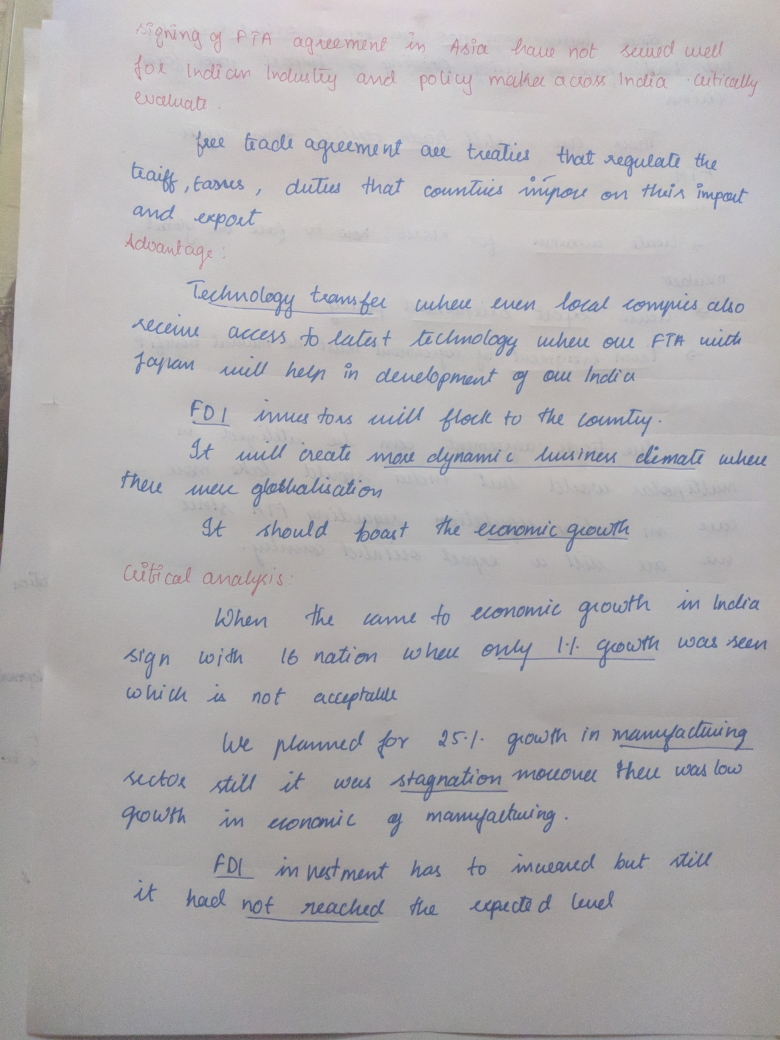 signing of FTA agreement in Asia have not served well
for Indian Industry and policy maker across India. critically
evaluate.
free trade agreement are treaties that regulate the
traiff, taxes, duties that countries impose on their import
and export
Advantage:
Technology transfer where even local compies also
receive access to latest technology where our FTA with
Japan will help in development of our India
FDI investors will flock to the country.
It will create more dynamic business climate where
there were globhalisation
It should boast the economic growth
Critical analysis:
When the came to economic growth in India
sign with 16 nation where only 1% growth was seen
which is not acceptable
We planned for 25% growth in manufacturing
sector still it was stagnation moreover there was low
growth in economic of manufacturing.
FDI investment has to increared but still
it had not reached the expected level